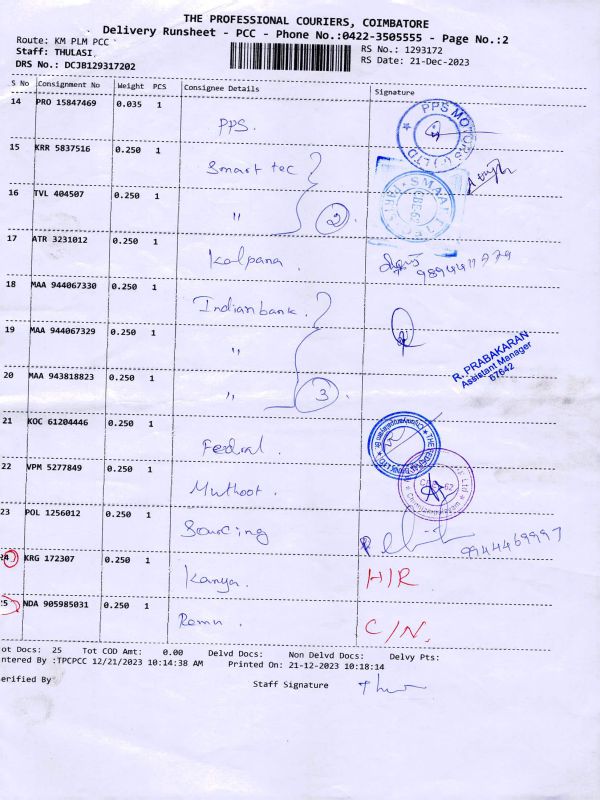 THE PROFESSIONAL COURIERS, COIMBATORE
Delivery Runsheet - PCC - Phone No.:0422-3505555 - Page No.:2
Route: KM PLM PCC
RS No.: 1293172
Staff: THULASI
RS Date: 21-Dec-2023
DRS No.: DCJB129317202
S No Consignment No Weight PCS Consignee Details Signature
14 PRO 15847469 0.035 1
PPS.
PPS MOTORS (P) LTD
15 KRR 5837516 0.250 1
Smart tec
16 TVL 404507 0.250 1
" 2
17 ATR 3231012 0.250 1
Kalpana.
18 MAA 944067330 0.250 1
Indian bank.
19 MAA 944067329 0.250 1
"
R. PRABAKARAN
Assistant Manager
67642
20 MAA 943818823 0.250 1
" 3
21 KOC 61204446 0.250 1
Fedral.
THE FEDERAL BANK LTD.
22 VPM 5277849 0.250 1
Muthoot.
23 POL 1256012 0.250 1
Sourcing
9944469997
24 KRG 172307 0.250 1
Kanya. H/R
25 NDA 905985031 0.250 1
Romu. C/N.
ot Docs: 25 Tot COD Amt: 0.00 Delvd Docs: Non Delvd Docs: Delvy Pts:
ntered By :TPCPCC 12/21/2023 10:14:38 AM Printed On: 21-12-2023 10:18:14
erified By
Staff Signature